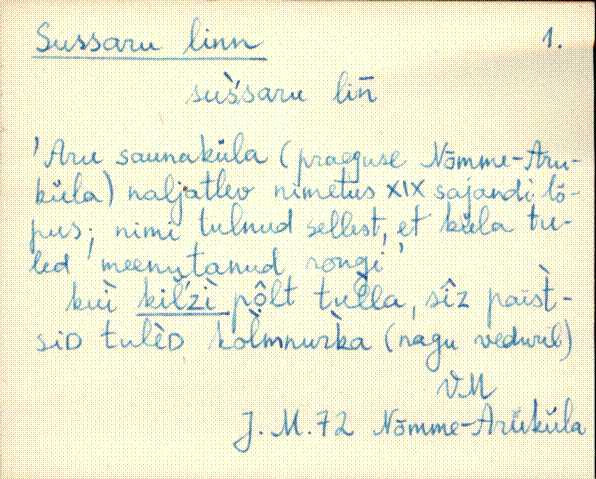 Sussaru linn 1.
sus̀'saru lin̄
'Aru saunaküla (praeguse Nõmme-Aru-
küla) naljatlev nimetus XIX sajandi lõ-
pus; nimi tulnud sellest, et küla tu-
led meenutanud rongi'
kui kil'zì pôlt tul̀la, sîz paist̀-
siD tulèD kol̀mnurka (nagu veduril)
VM
J. M. 72 Nõmme-Aruküla